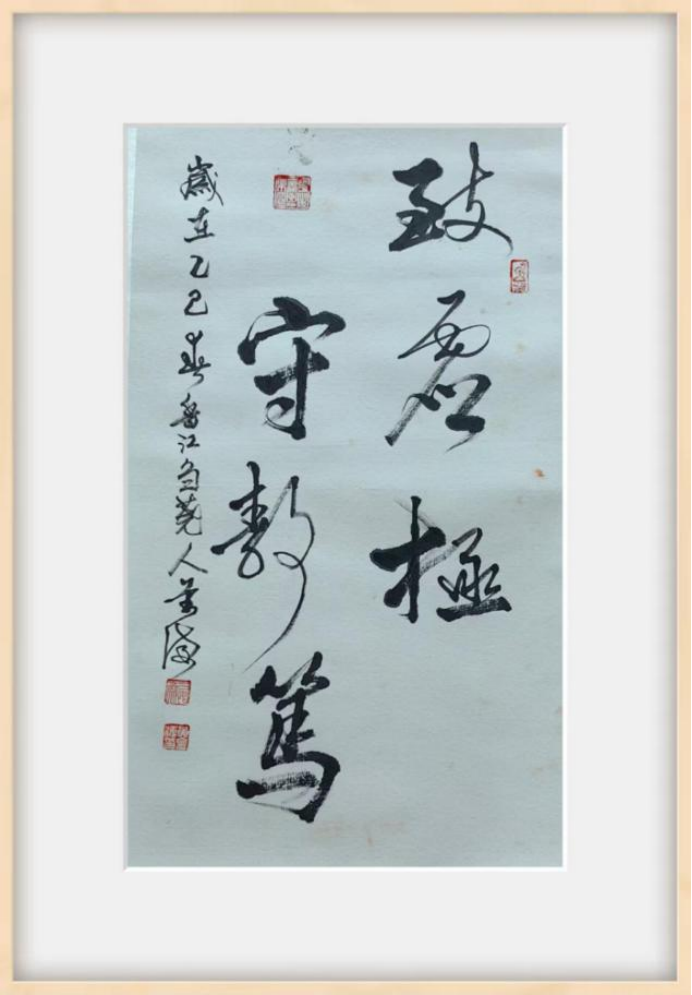 致虚極
守静篤
歲在乙巳春江刍荛人